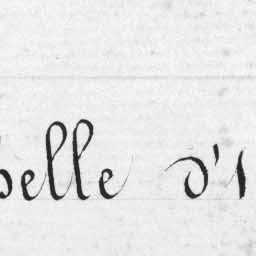 belle d'i